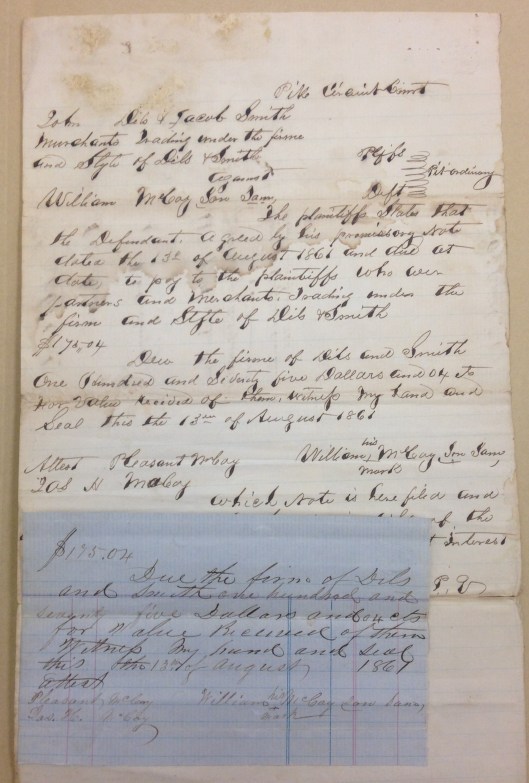 Pike Circuit Court
John Dils & Jacob Smith
Merchants Trading under the firme
and Style of Dils & Smith Pltffs
against Pet. ordinary
William McCoy Son Sam, Deft
The plaintiffs State that
the Defendant. agreed by his promissory Note
dated the 13th of August 1861 and due at
date, to pay to the plaintiffs who were
partners and Merchants. Trading under the
firm and Style of Dils & Smith
$175.04
Dew the firme of Dils and Smith
One Hundred and Seventy five Dollars and 04 cts
for Value recived of them, witness My hand and
Seal this the 13th of August 1861
his
Attest Pleasant McCoy William McCoy Son Sam,
mark
Jas H McCoy
which Note is here filed and
of the
Interest
$175.04
Due the firm of Dils
and Smith one hundred and
seventy five Dollars and 04 cts
for Value Received of them
Witness My hand and seal
this the 13th of August 1861
attest
his
Pleasant McCoy William McCoy Son Sam,
mark
Jas. H. McCoy